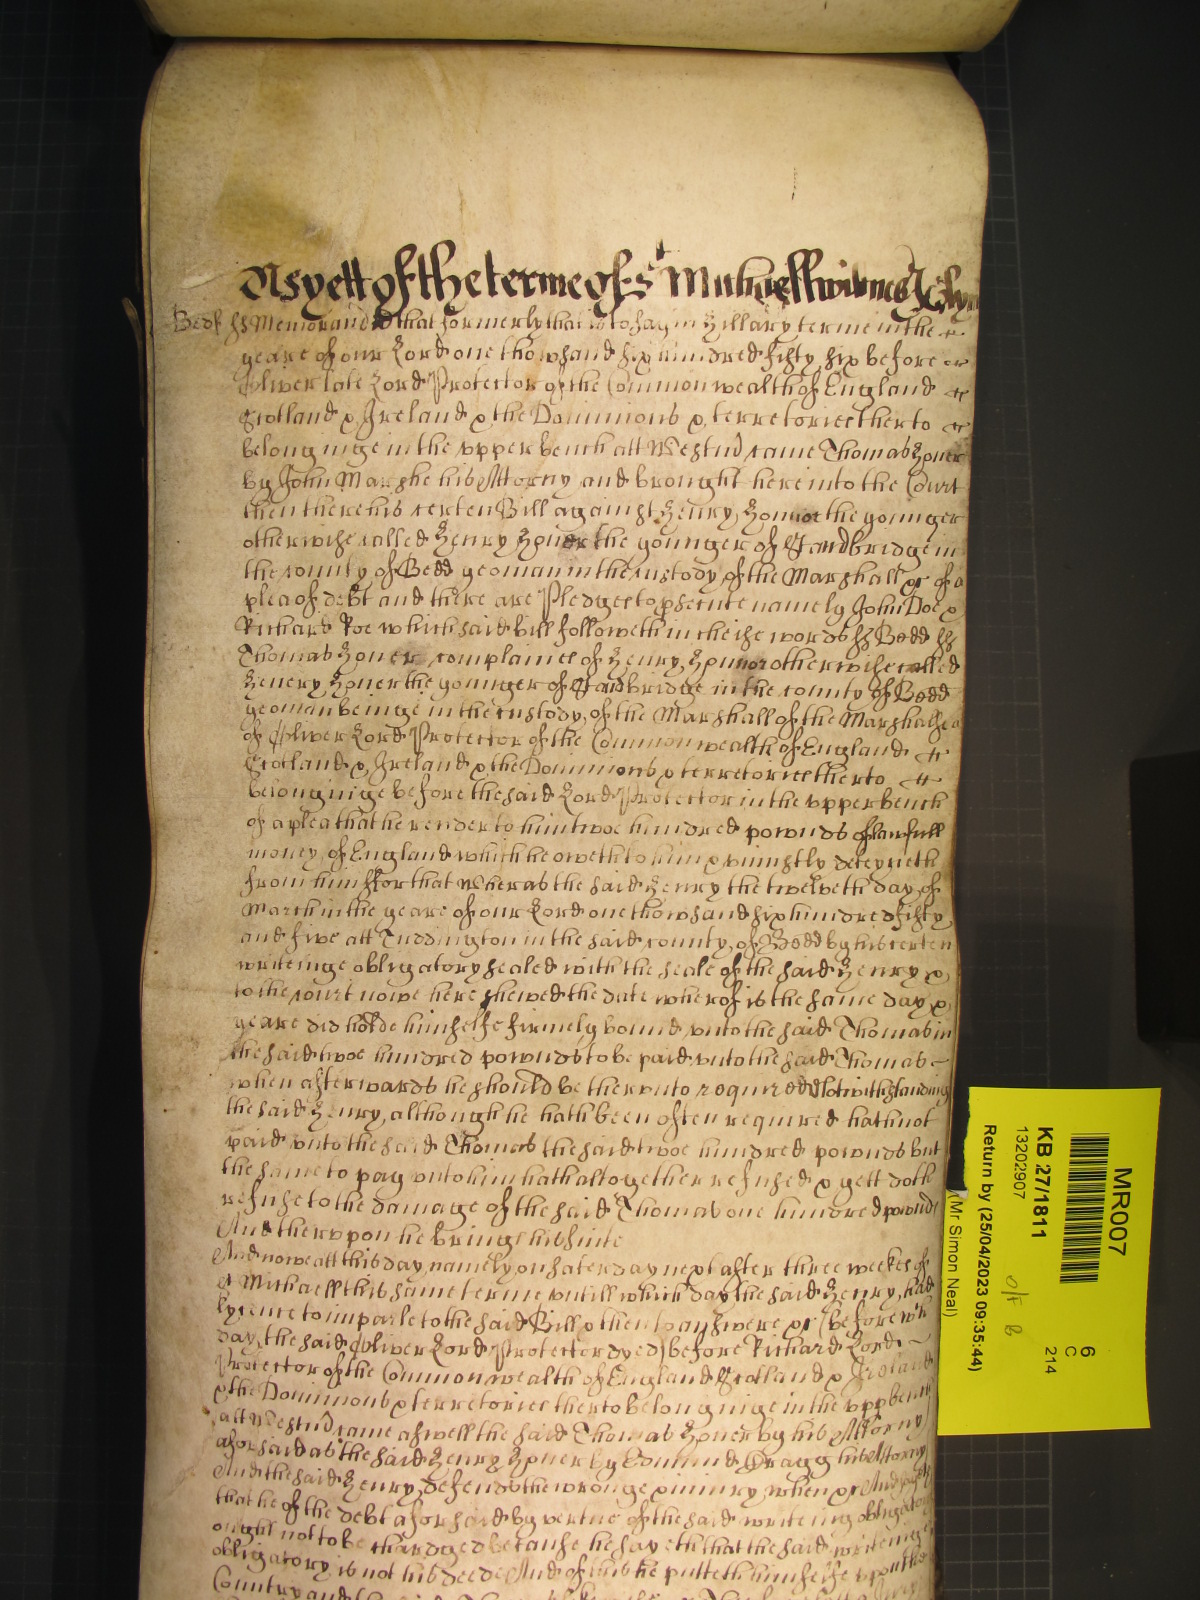 As yett of the terme of St Michaell wittnes
Bedf ss Memorand that formerly that is to say in Hillary terme in the
yeare of our Lord one thowsand six hundred fifty six before
Oliver late Lord Protector of the Commonwealth of England
Scotland & Ireland & the Dominions & terretories therto
belonginge in the upper bench att Westm came Thomas
by John Marshe his Attorny and brought here into the Court
then there his certen Bill against Henry the younger
otherwise called Henry the younger of Standbridge in
the county of Bedd yeoman in the custody of the Marshall &c of a
plea of debt and there are Pledges to psecute namely John Doe &
Richard Roe which said bill followeth in theise words ss Bedd ss
Thomas complaines of Henry otherwise called
Henery the younger of Standbridge in the county of Bedd
yeoman beinge in the custody of the Marshall of the Marshalsea
of Oliver Lord Protector of the Commonwealth of England
Scotland & Ireland & the Dominions & terretories therto
belonginge before the said Lord Protector in the upper bench
of a plea that he render to him twoe hundred pownds of lawfull
money of England which he oweth to him & uniustly deteyneth
from him ffor that Wheras the said Henry the twelveth day of
March in the yeare of our Lord one thowsand six hundred fifty
and five att Tuddington in the said county of Bedd by his certen
writeinge obligatory sealed with the seale of the said Henry &
to the court nowe here shewed the date wherof is the same day &
yeare did holde himselfe firmely bound unto the said Thomas in
the said twoe hundred pownds to be paid unto the said Thomas
when afterwards he should be therunto required Notwithstanding
the said Henry although he hath been often required hath not
paid unto the said Thomas the said twoe hundred pownds but
the same to pay unto him hath altogether refused & yett doth
refuse to the damage of the said Thomas one hundred pownds
And therupon he brings his suite
And nowe att this day namely on saterday next after three weekes of
St Michaell this same terme untill which day the said Henry had
lycence to imparle to the said Bill & then to answere &c (before wch
day the said Oliver Lord Protector dyed) before Richard Lord
Protector of the Commonwealth of England Scotland & Ireland
& the Dominions & terretories therto belonginge in the upp bench
att Westm came aswell the said Thomas by his Attorny
aforsaid as the said Henry by Edmund Dragg his Attorny
And the said Henry defends the wronge & iniury when &c And saith
that he of the debt aforsaid by vertue of the said writeing obligatory
ought not to be chardged because he sayeth that the said writeinge
obligatory is not his deede And of this he putteth himselfe upon the
Country and
MR007
6
C
214
KB 27/1811
13202907
O/F B
Return by (25/04/2023 09:35:44)
(Mr Simon Neal)